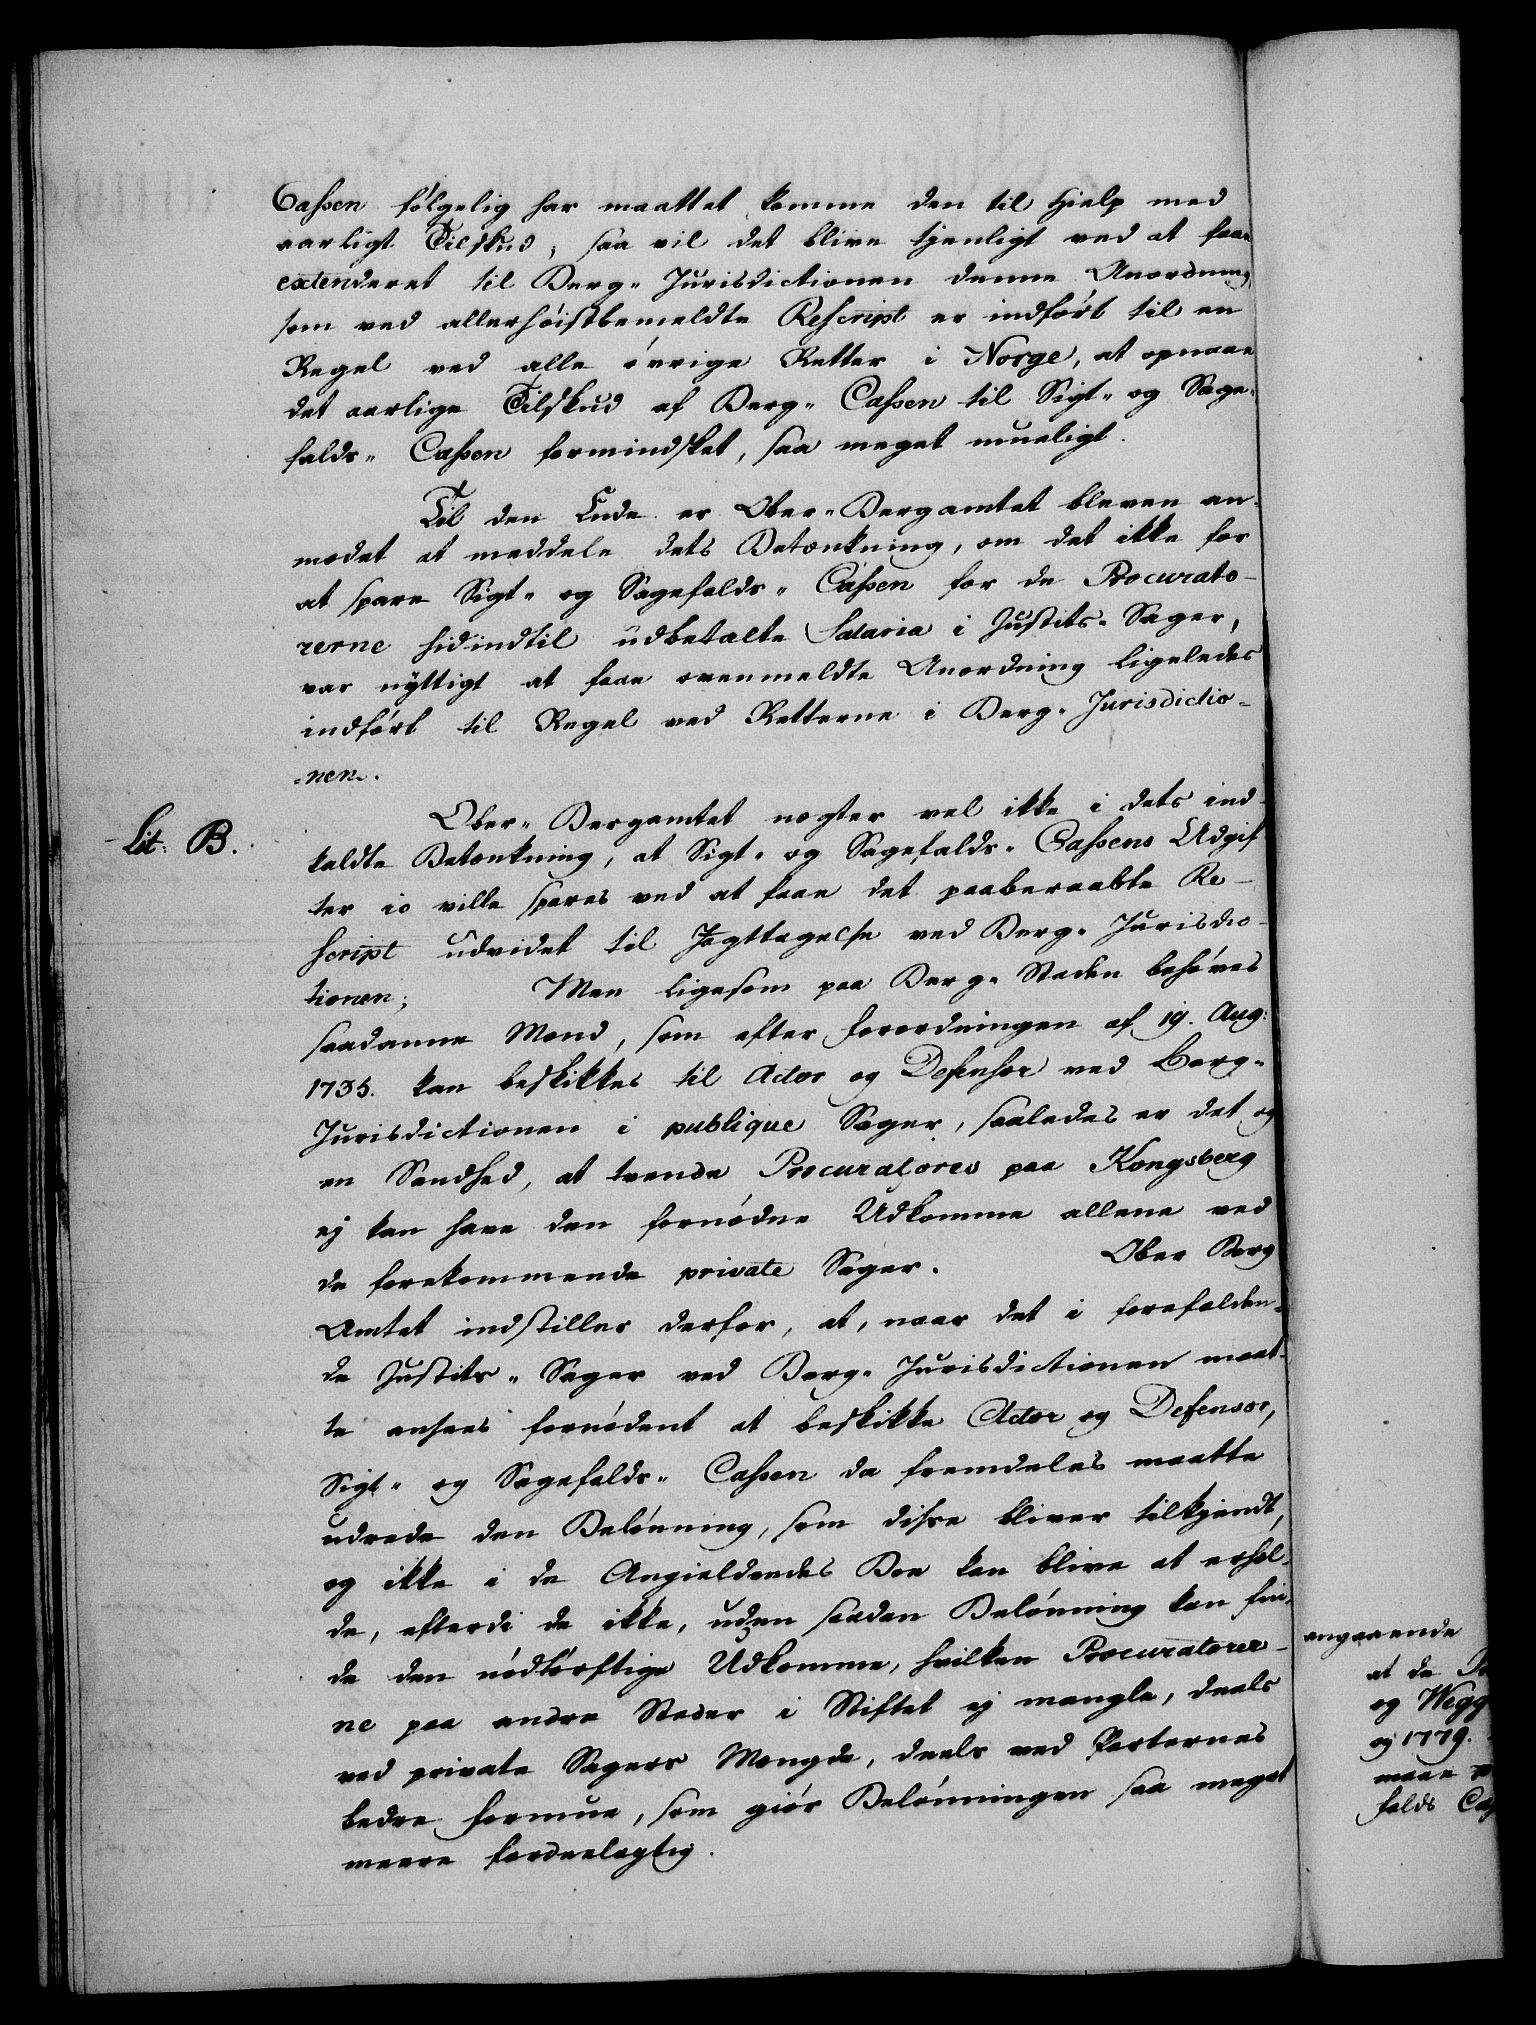 Cassen følgelig har maattet komme den til Hielp med
aarligt Tilskud; saa vil det blive tjenligt ved at faae
extenderet til Berg-Jurisdictionen denne Anordning
som ved allerhøistbemeldte Rescript er indført til en
Regel ved alle øvrige Retter i Norge, at opnaae
det aarlige Tilskud af Berg-Cassen til Sigt- og Sage-
falds-Cassen formindsket, saa meget mueligt.
Til den Ende er Ober-Bergamtet bleven an-
modet at meddele dets Betænkning, om det ikke for
at spare Sigt- og Sagefalds-Cassen for de Procurato-
rerne hidindtil udbetalte Salaria i Justits-Sager,
var nyttigt at faae ovenmeldte Anordning ligeledes
indført til Regel ved Retterne i Berg-Jurisdictio-
nen.
Lit: B.
Ober-Bergamtet nægter vel ikke i dets ind-
kaldte Betænkning, at Sigt- og Sagefalds-Cassens Udgif
ter jo ville spares ved at faae det paaberaabte Re-
script udvidet til Jagttagelse ved Berg-Jurisdic-
tionen; Men ligesom paa Berg-Staden behøves
saadanne Mænd, som efter Forordningen af 19. Aug:
1735. kan beskikkes til Actor og Defensor ved Berg-
Jurisdictionen i publique Sager, saaledes er det og
en Sandhed, at tvende Procuratores paa Kongsberg
ej kan have den fornødne Udkomme allene ved
de forekommende private Sager. Ober Berg
Amtet indstiller derfor, at, naar det i forefalden-
de Justits-Sager ved Berg-Jurisdictionen maat-
te ansees fornødent at beskikke Actor og Defensor,
Sigt- og Sagefalds-Cassen da fremdeles maatte
udrede den Belønning, som disse bliver tilkjendt,
og ikke i de Angieldendes Boe kan blive at erhol-
de, efterdi de ikke, uden saadan Belønning kan fin-
de den nødtørftige Udkomme, hvilken Procuratorer-
ne paa andre Steder i Stiftet ej mangle, deels
ved private Sagers Mængde, deels ved Parternes
bedre Formue, som giør Belønningen saa meget
meere fordeelagtig.
angaaende
at de
og Wegg
og 1779.
maae
falds